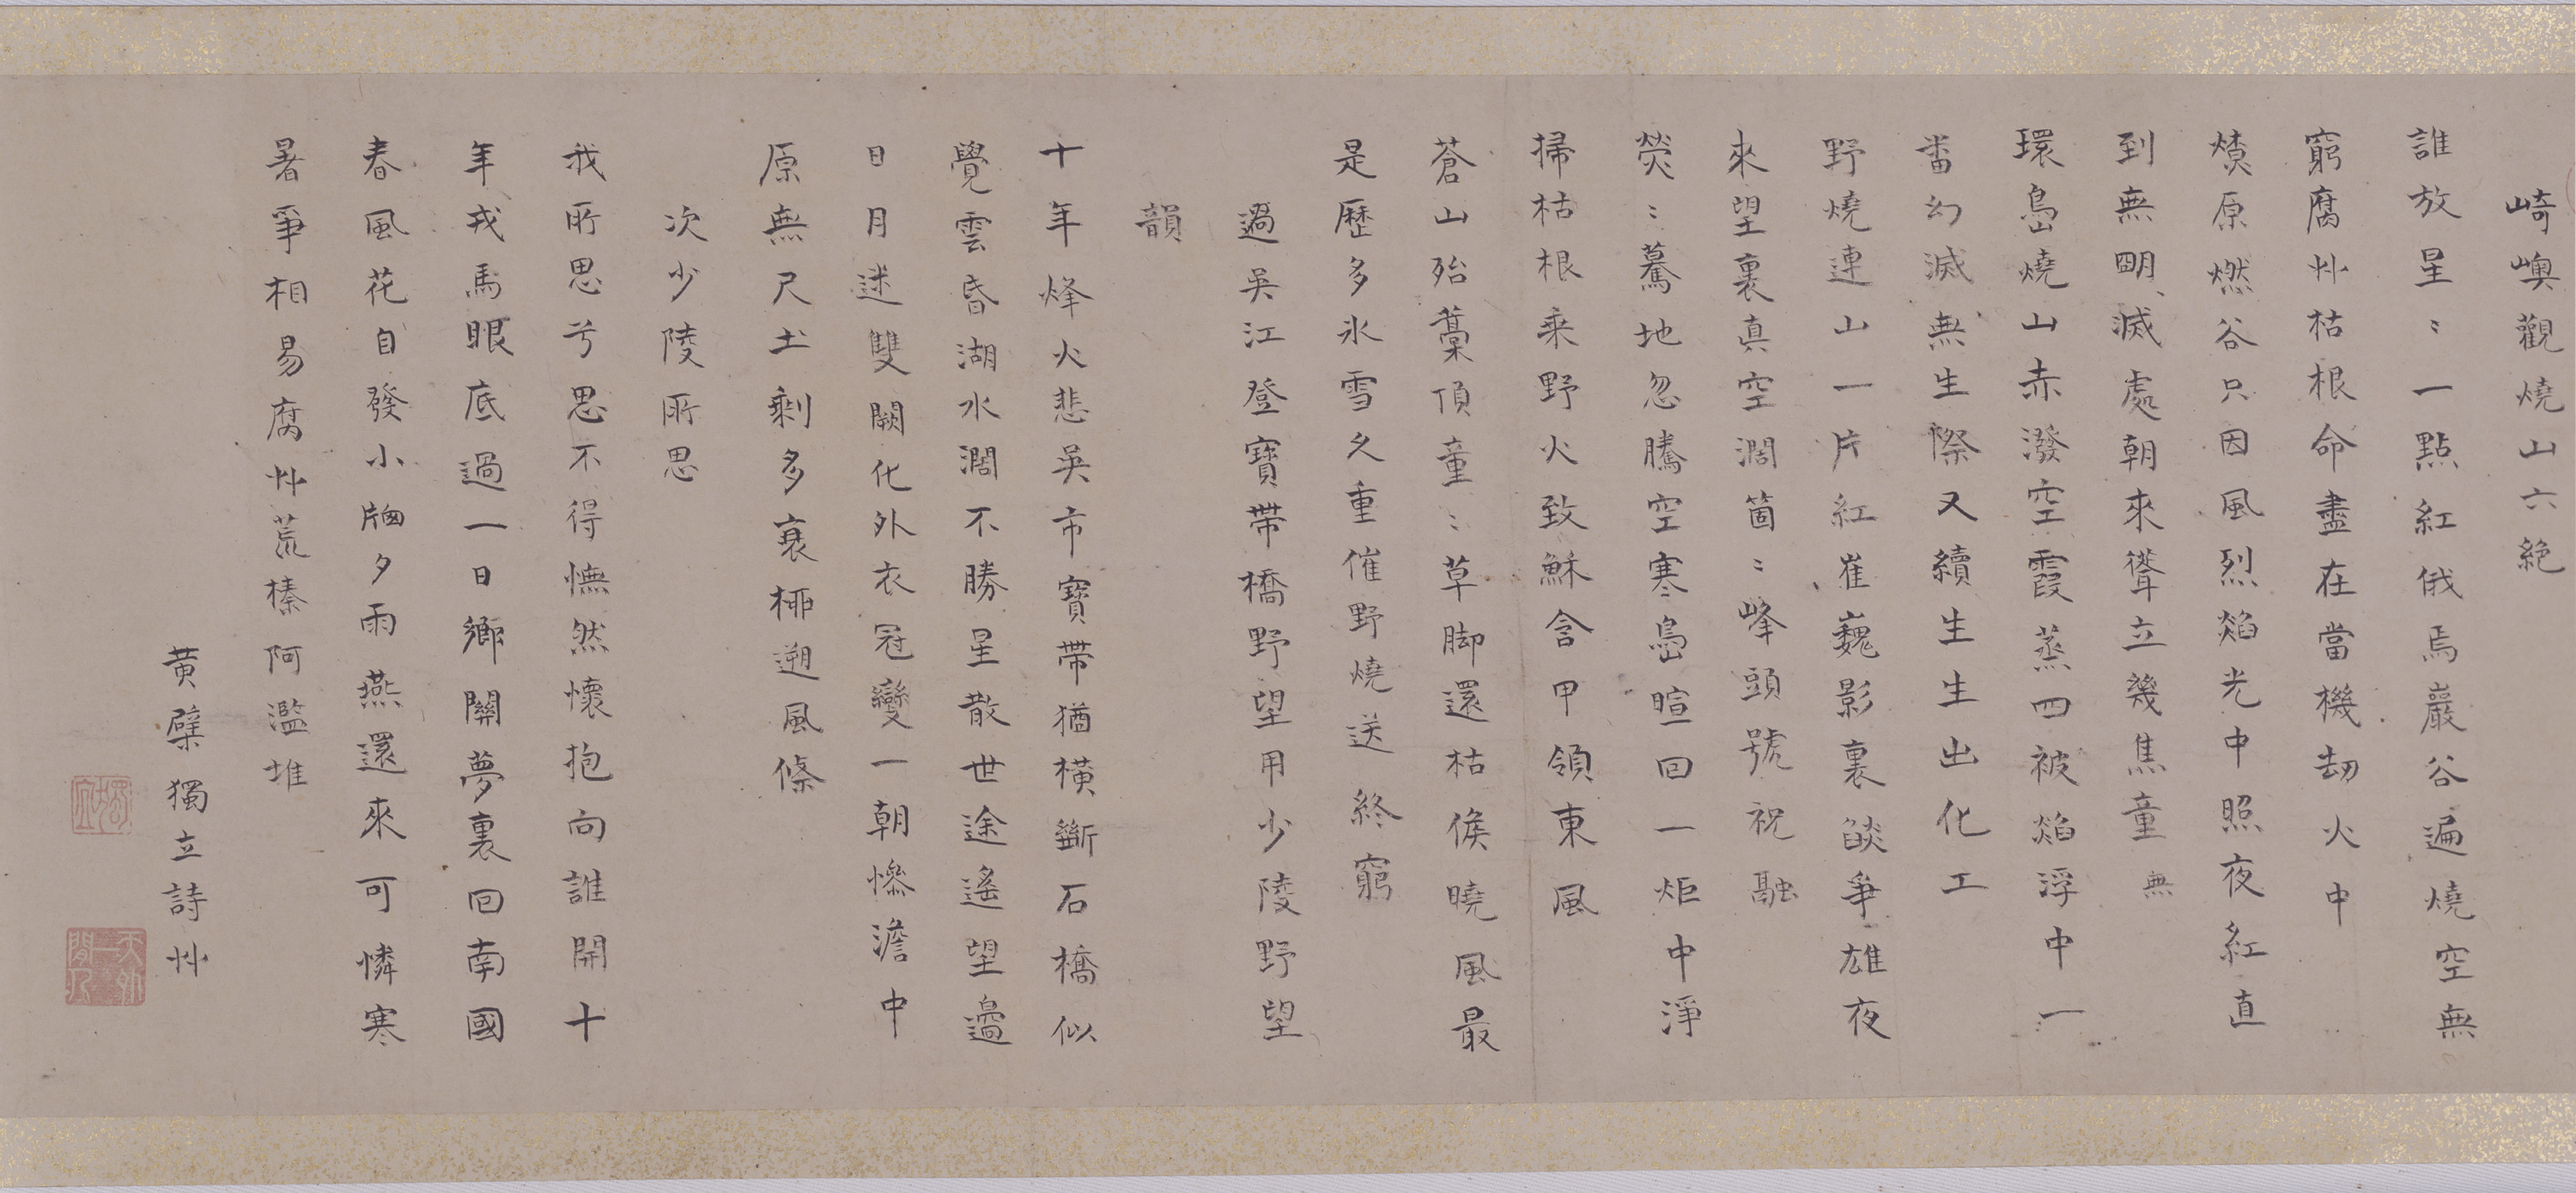 崎嶴觀燒山六絶
誰放星〻一點紅俄焉巖谷遍燒空無
窮腐艸枯根命盡在當機劫火中
燌原燃谷只因風烈焰光中照夜紅直
到無明滅處朝來聳立幾焦童無
環島燒山赤潑空霞蒸四被焰浮中一
番幻滅無生際又續生生出化工
野燒連山一片紅崔巍影裏燄爭雄夜
來望裏真空濶箇〻峰頭號祝融
熒〻驀地忽騰空寒島暄回一炬中淨
掃枯根乘野火致穌含甲領東風
蒼山殆藁頂童〻草脚還枯候曉風最
是歷多氷雪久重催野燒送終窮
過吳江登寶帶橋野望用少陵野望
韻
十年烽火悲吳市寶帶猶橫斷石橋似
覺雲昏湖水濶不勝星散世途遙望邊
日月迷雙闕化外衣冠變一朝慘澹中
原無尺土剩多衰柳遡風條
次少陵所思
我所思兮思不得憮然懷抱向誰開十
年戎馬眼底過一日鄉關夢裏回南國
春風花自發小牕夕雨燕還來可憐寒
暑爭相易腐艸荒榛阿濫堆
黃檗獨立詩艸
天外一閒人